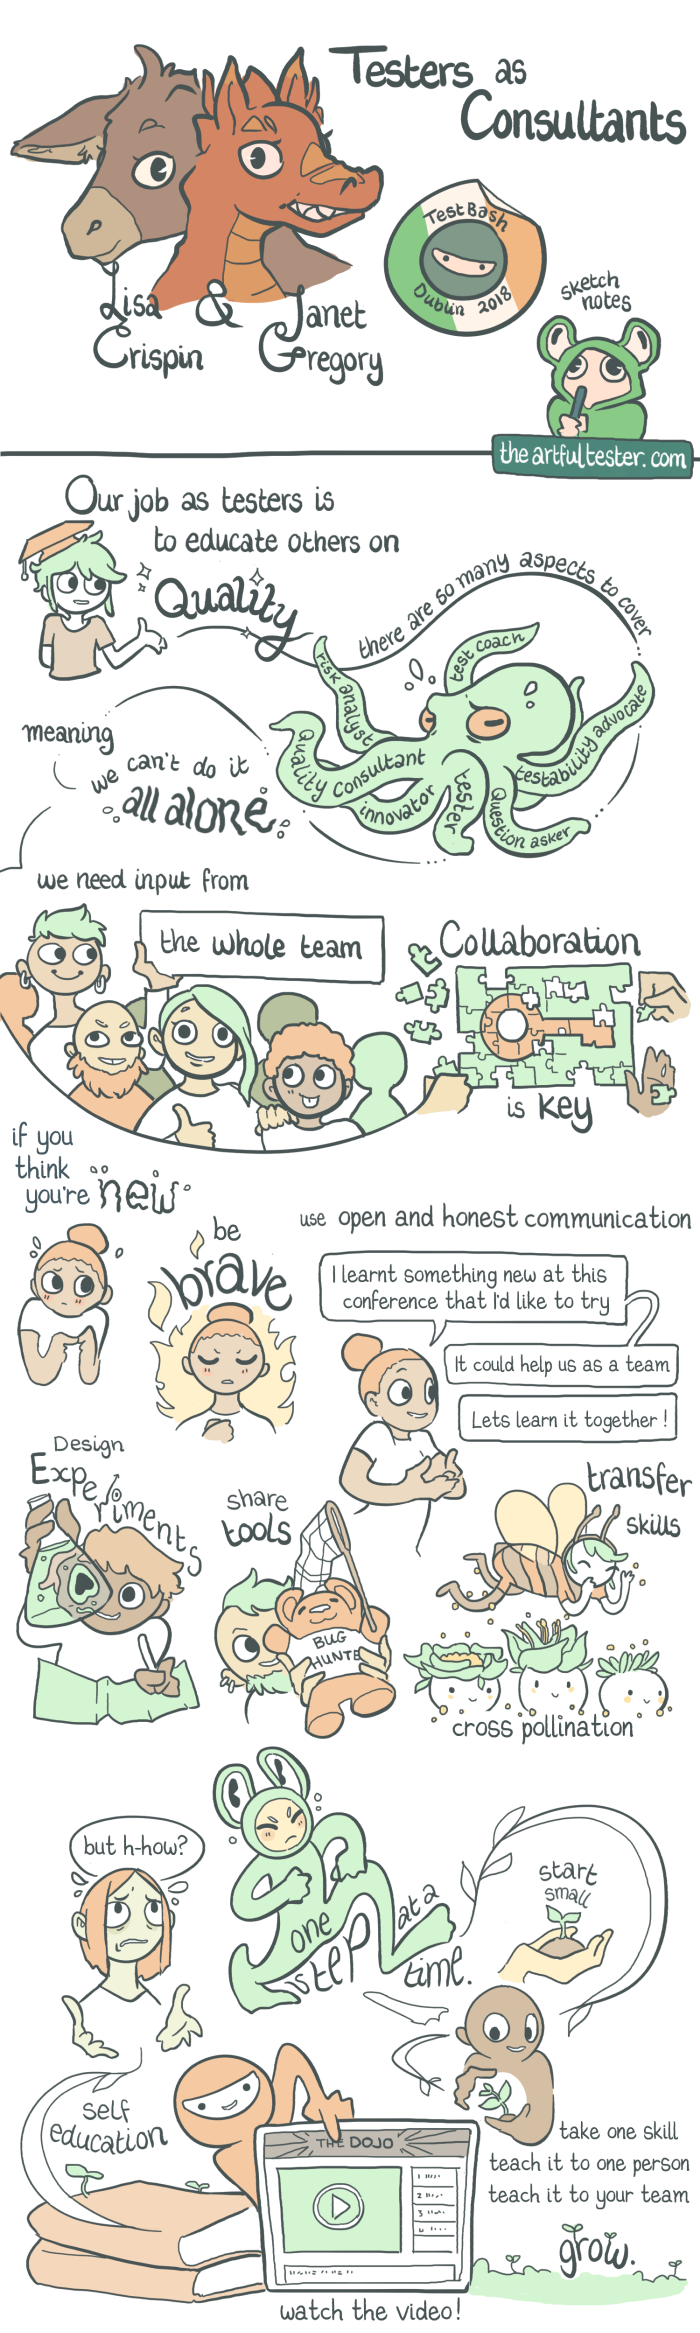 Testers as
Consultants
TestBash
Dublin 2018
sketch
notes
Lisa & Janet
Crispin Gregory
theartfultester.com
Our job as testers is
to educate others on
Quality
there are so many aspects to cover
risk analyst
test coach
testability advocate
Quality Consultant
innovator
tester
Question asker
meaning
we can't do it
all alone
we need input from
the whole team
Collaboration
is key
if you
think
you're new
be
brave
use open and honest communication
I learnt something new at this
conference that I'd like to try
It could help us as a team
Lets learn it together!
Design
Experiments
share
tools
BUG
HUNTE
transfer
skills
cross pollination
but h-how?
one
step
at a
time.
start
small
self
education
THE DOJO
1
2
3
4
take one skill
teach it to one person
teach it to your team
grow.
watch the video!